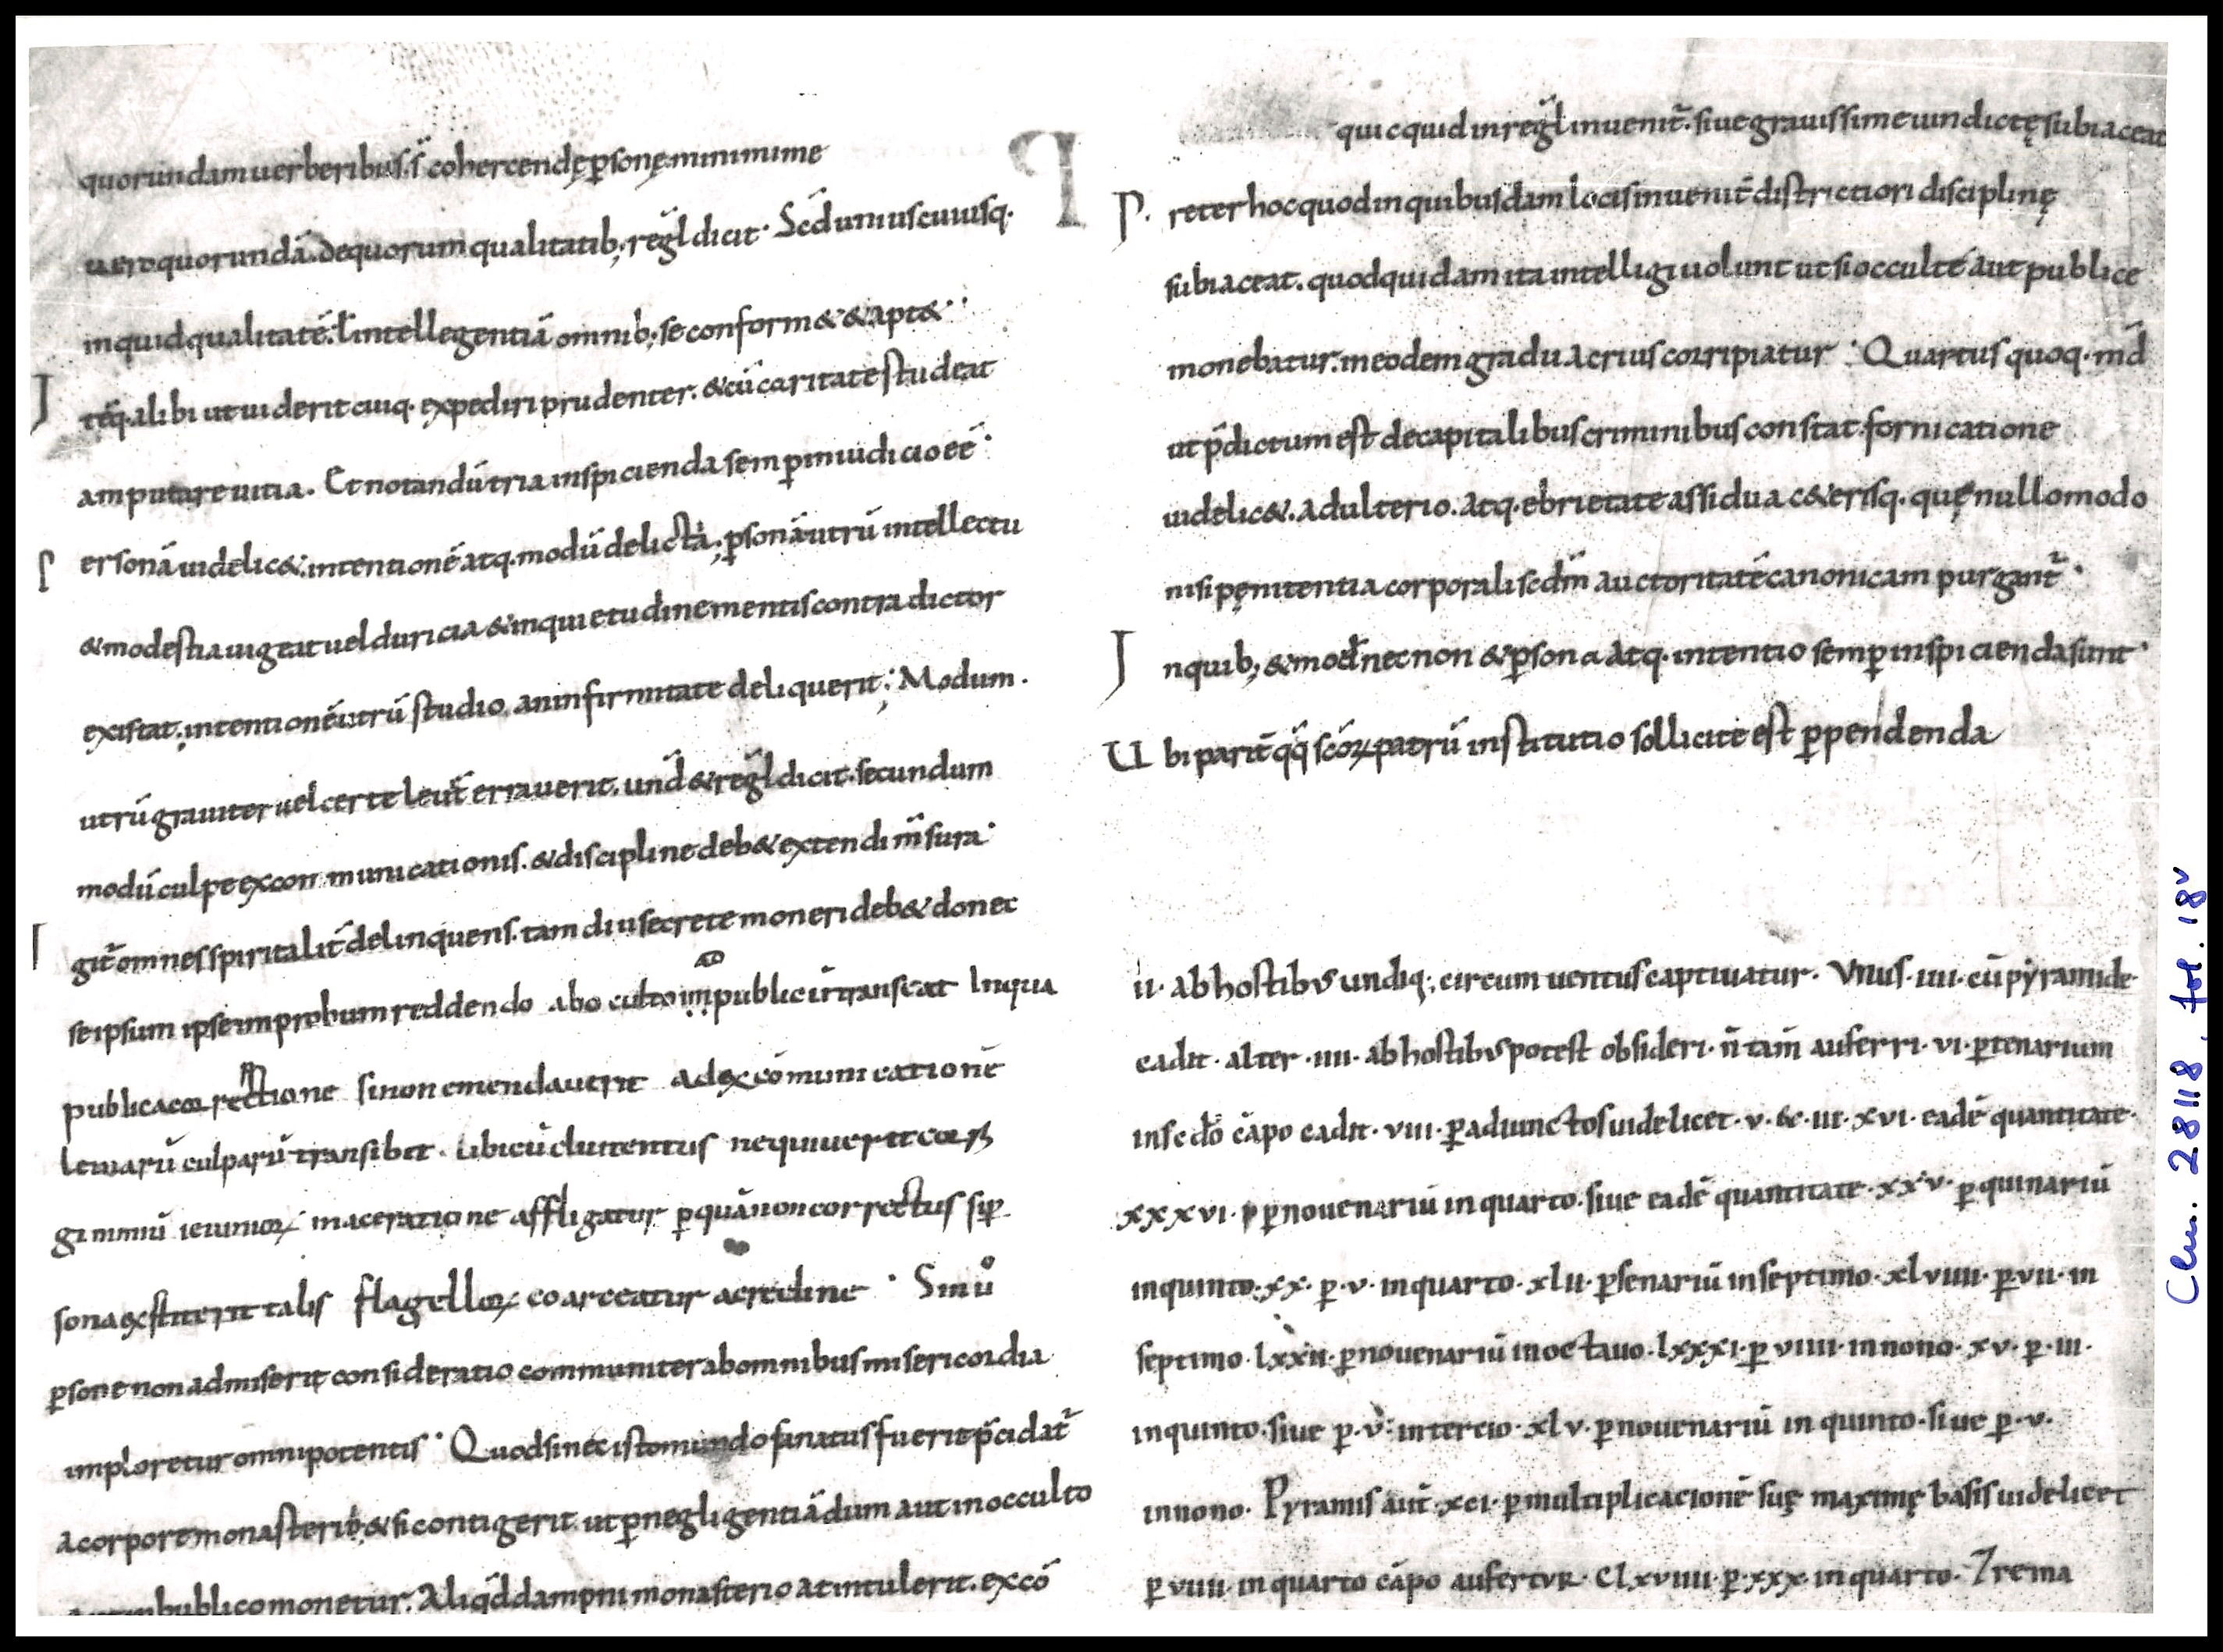 quorundam uerberibus. s̄ cohercendę ꝑsonę minimime
uero quorundā. De quorum qualitatib; regl̄ dicit · Sed uniuscuiusq·
inquid qualitatē. ł intellegentiā omnib; se conform& & apt& ·
J tēq· alibi ut uiderit cuiq· expediri prudenter. & cū caritate studeat
amputare uitia. Et notandū tria inspicienda semꝑ in iudicio eē ·
P ersonā uidelic&. intentionē atq· modū delicta; ꝑsonā utrū intellectu
& modestia uigeat uel duricia & inquietudine mentis contradictor
existat. intentionē utrū studio an infirmitate deliquerit; Modum ·
utrū grauiter uel certe leuit̄ errauerit. und̄ & regl̄ dicit. secundum
modū culpe excommunicationis. & discipline deb& extendi m̄sura ·
I git̄ omnes spiritalit̄ delinquens. tam diu secrete moneri deb& donec
se ipsum ipse improbum reddendo abo culto in publicū transeat In qua
AD
publica correctione si non emendauerit ad excōmunicationē
leuiarū culparū transibit. Ubi cū diutentus nequiuerit
gi nimiū ieiunioꝝ maceratione affligatur ꝑ quā non correctus si ꝑ
sona exstiterit talis flagelloꝝ coarceatur acredine · Sin ů
ꝑsone non admiserit consideratio communiter ab omnibus misericordia
imploretur omnipotentis · Quod si nec isto mundo sanatus fuerit p̄cidat̄
a corpore monasterii. & si contigerit ut ꝑ negligentiā dum aut in occulto
publico monetur. Aliqd̄ dampni monasterio at intulerit. excō
P
quicquid in regl̄ inuenit̄. siue grauissime uindictę subiaceat
P. reter hoc quod in quibusdam locis inuenit̄ districtiori disciplinę
subiaceat. quod quidam ita intelligi uolunt ut si occulte aut publice
monebatur. in eodem gradu acrius corripiatur · Quartus quoq· md̄
ut p̄dictum est de capitalibus criminibus constat fornicatione
uidelic&. adulterio. atq· ebrietate assidua c&erisq· quę nullomodo
nisi pęnitentia corporali scdm̄ auctoritatē canonicam purgant̄ ·
J n quib; & mod̄ necnon & ꝑsona atq· intentio semꝑ inspicienda sunt ·
U bi parit̄ qq̄ scōꝝ patrū institutio sollicite est ꝑpendenda
ii· ab hostibus undiq; circumuentus captiuatur· Vnus· iiii· cū pyramide·
cadit· alter· iiii· ab hostibus potest obsideri· n̄ tam̄ auferri· vi· ꝑ tenarium
in scdo cāpo cadit· viii· ꝑ adiunctos uidelicet· v· & iii· xvi· eadē quantitate·
xxxvi· ꝑ nouenariū in quarto· siue eadē quantitate· xxv· ꝑ quinariū
in quinto· xx· ꝑ· v· in quarto· xlii· ꝑ senariū in septimo· xlviiii· ꝑ vii· in
septimo· lxxii· ꝑ nouenariū in octauo· lxxxi· ꝑ viiii· in nono· xv· ꝑ· iii·
in quinto· siue ꝑ· v· in tercio· xlv· ꝑ nouenariū in quinto· siue ꝑ· v·
in nono· Pyramis aut̄· xci· ꝑ multiplicacionē suę maximę basis uidelicet
ꝑ viiii· in quarto cāpo aufertur· Clxviiii· ꝑ· xxx· in quarto· 7 rema
Clm. 28118, fol. 18v